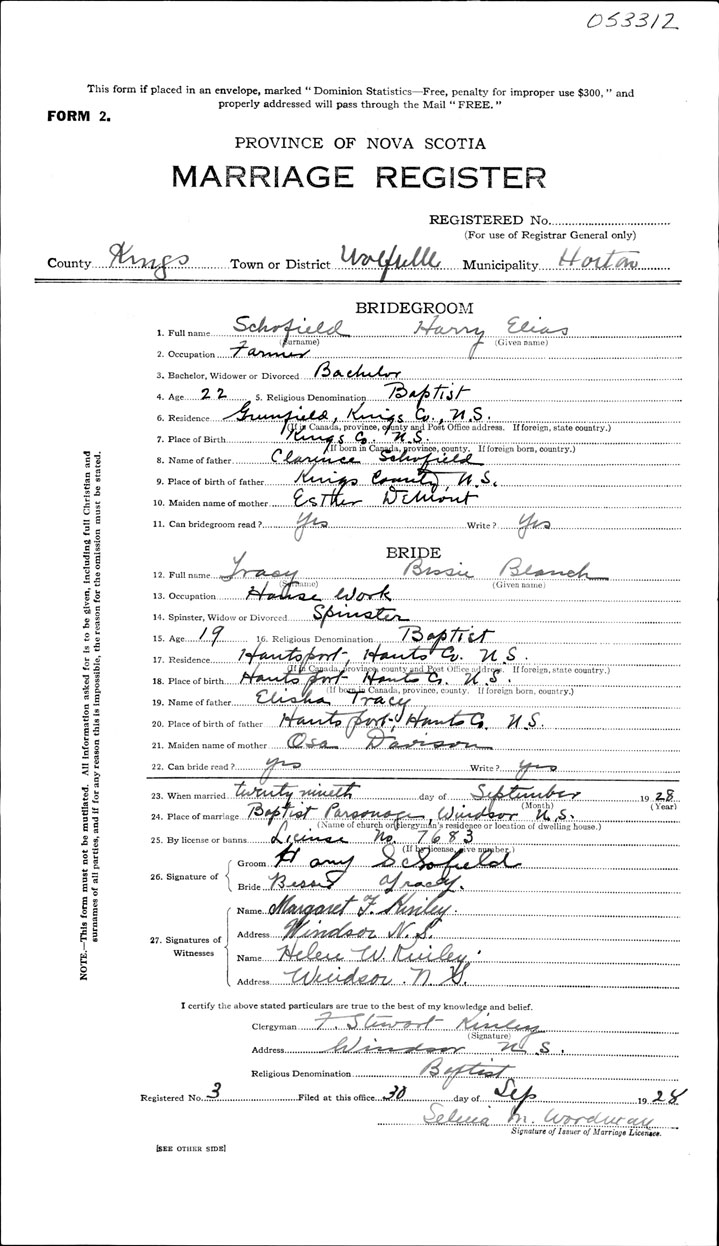 053312
This form if placed in an envelope, marked "Dominion Statistics—Free, penalty for improper use $300," and
properly addressed will pass through the Mail "FREE."
FORM 2.
PROVINCE OF NOVA SCOTIA
MARRIAGE REGISTER
REGISTERED No.
(For use of Registrar General only)
County Kings Town or District Wolfville Municipality Horton
BRIDEGROOM
1. Full name Schofield Harry Elias
(Surname) (Given name)
2. Occupation Farmer
3. Bachelor, Widower or Divorced Bachelor
4. Age 22 5. Religious Denomination Baptist
6. Residence Greenfield, Kings Co., N.S.
(If in Canada, province, county and Post Office address. If foreign, state country.)
7. Place of Birth Kings Co. N.S.
(If born in Canada, province, county. If foreign born, country.)
8. Name of father Clarence Schofield
9. Place of birth of father Kings County, N.S.
10. Maiden name of mother Esther Demont
11. Can bridegroom read? Yes Write? Yes
BRIDE
12. Full name Tracy Bessie Blanch
(Surname) (Given name)
13. Occupation House Work
14. Spinster, Widow or Divorced Spinster
15. Age 19 16. Religious Denomination Baptist
17. Residence Hantsport Hants Co. N.S.
(If in Canada, province, county and Post Office address. If foreign, state country.)
18. Place of birth Hantsport Hants Co. N.S.
(If born in Canada, province, county. If foreign born, country.)
19. Name of father Elisha Tracy
20. Place of birth of father Hantsport, Hants Co. N.S.
21. Maiden name of mother Osa Davison
22. Can bride read? yes Write? yes
23. When married twenty nineth day of September 1928
(Month) (Year)
24. Place of marriage Baptist Parsonage, Windsor N.S.
(Name of church or clergyman's residence or location of dwelling house.)
25. By license or banns License No. 7683
(If by license, give number.)
26. Signature of
Groom Harry Schofield
Bride Bessie Tracy.
27. Signatures of Witnesses
Name Margaret F. Kinley.
Address Windsor N.S.
Name Helen W. Kinley.
Address Windsor. N.S.
I certify the above stated particulars are true to the best of my knowledge and belief.
Clergyman F. Stewart Kinley
(Signature)
Address Windsor N.S.
Religious Denomination Baptist
Registered No. 3 Filed at this office 30 day of Sep 1928
M.
Signature of Issuer of Marriage Licence.
[SEE OTHER SIDE]
NOTE.—This form must not be mutilated. All information asked for is to be given, including full Christian and
surnames of all parties, and if for any reason this is impossible, the reason for the omission must be stated.